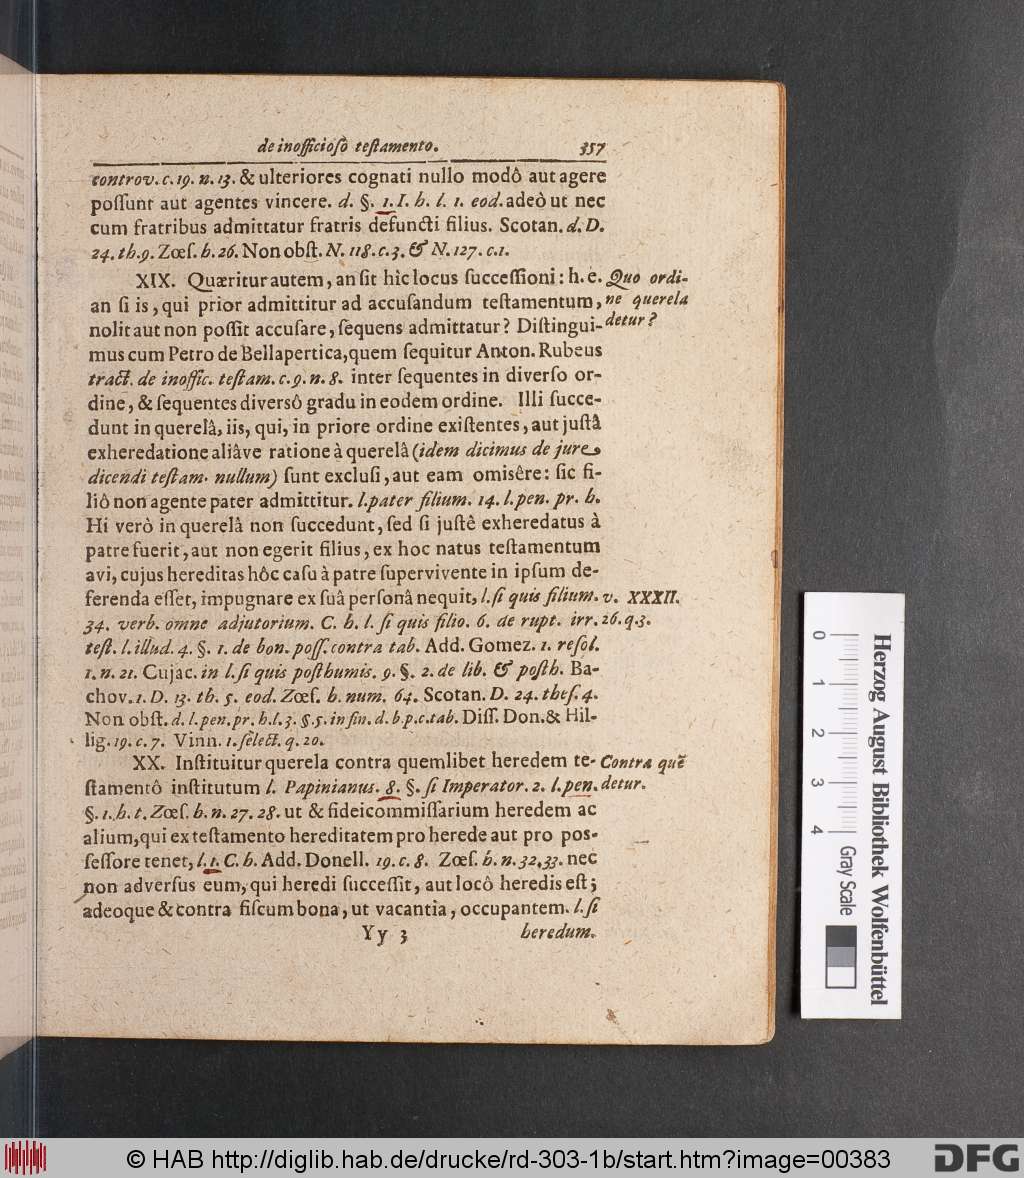 de inofficioſo teſtamento. 357
controv. c. 19. n. 13. & ulteriores cognati nullo modô aut agere
poſſunt aut agentes vincere. d. §. 1. I. h. l. 1. eod. adeò ut nec
cum fratribus admittatur fratris defuncti filius. Scotan. d. D.
24. th. 9. Zœſ. h. 26. Non obſt. N. 118. c. 3. & N. 127. c. 1.
XIX. Quæritur autem, an ſit hîc locus ſucceſſioni: h. e.
an ſi is, qui prior admittitur ad accuſandum teſtamentum,
nolit aut non poſſit accuſare, ſequens admittatur? Diſtingui-
mus cum Petro de Bellapertica, quem ſequitur Anton. Rubeus
tract. de inoffic. teſtam. c. 9. n. 8. inter ſequentes in diverſo or-
dine, & ſequentes diversô gradu in eodem ordine. Illi ſucce-
dunt in querelâ, iis, qui, in priore ordine exiſtentes, aut juſtâ
exheredatione aliâve ratione à querelâ (idem dicimus de jure
dicendi teſtam. nullum) ſunt excluſi, aut eam omisêre: ſic fi-
liô non agente pater admittitur. l. pater filium. 14. l. pen. pr. h.
Hi verò in querelâ non ſuccedunt, ſed ſi juſtê exheredatus à
patre fuerit, aut non egerit filius, ex hoc natus teſtamentum
avi, cujus hereditas hôc caſu à patre ſupervivente in ipſum de-
ferenda eſſet, impugnare ex ſuâ perſonâ nequit, l. ſi quis filium.
34. verb. omne adjutorium. C. h. l. ſi quis filio. 6. de rupt. irr.
teſt. l. illud. 4. §. 1. de bon. poſſ. contra tab. Add. Gomez. 1. reſol.
1. n. 21. Cujac. in l. ſi quis poſthumis. 9. §. 2. de lib. & poſth. Ba-
chov. 1. D. 13. th. 5. eod. Zœſ. h. num. 64. Scotan. D. 24. theſ. 4.
Non obſt. d. l. pen. pr. h. l. 3. §. 5. in fin. d. b. p. c. tab. Diſſ. Don. & Hil-
lig. 19. c. 7. Vinn. 1. ſelect. q. 20.
Quo ordi-
ne querela
detur?
v. XXXII.
26. q. 3.
XX. Inſtituitur querela contra quemlibet heredem te-
ſtamentô inſtitutum l. Papinianus. 8. §. ſi Imperator. 2. l. pen.
§. 1. h. t. Zœſ. h. n. 27. 28. ut & fideicommiſſarium heredem ac
alium, qui ex teſtamento hereditatem pro herede aut pro poſ-
ſeſſore tenet, l. 1. C. h. Add. Donell. 19. c. 8. Zœſ. h. n. 32. 33. nec
non adverſus eum, qui heredi ſucceſſit, aut locô heredis eſt;
adeoque & contra fiſcum bona, ut vacantia, occupantem. l. ſi
Contra quē
detur.
Yy 3 heredum.
0 1 2 3 4 Gray Scale
Herzog August Bibliothek Wolfenbüttel
© HAB http://diglib.hab.de/drucke/rd-303-1b/start.htm?image=00383
DFG